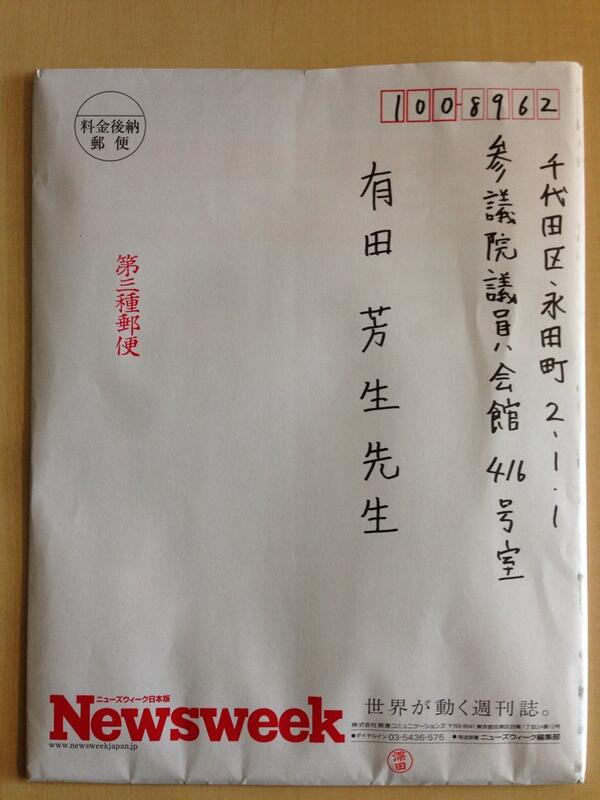 1008962
千代田区永田町2-1-1
参議院議員会館 416号室
有田芳生先生
料金後納
郵便
第三種郵便
ニューズウィーク日本版
Newsweek
www.newsweekjapan.jp
世界が動く週刊誌。
株式会社阪急コミュニケーションズ 〒153-8541 東京都目黒区目黒1丁目24番12号
●ダイヤルイン 03-5436-575 ●発送部署 ニューズウィーク編集部
深田